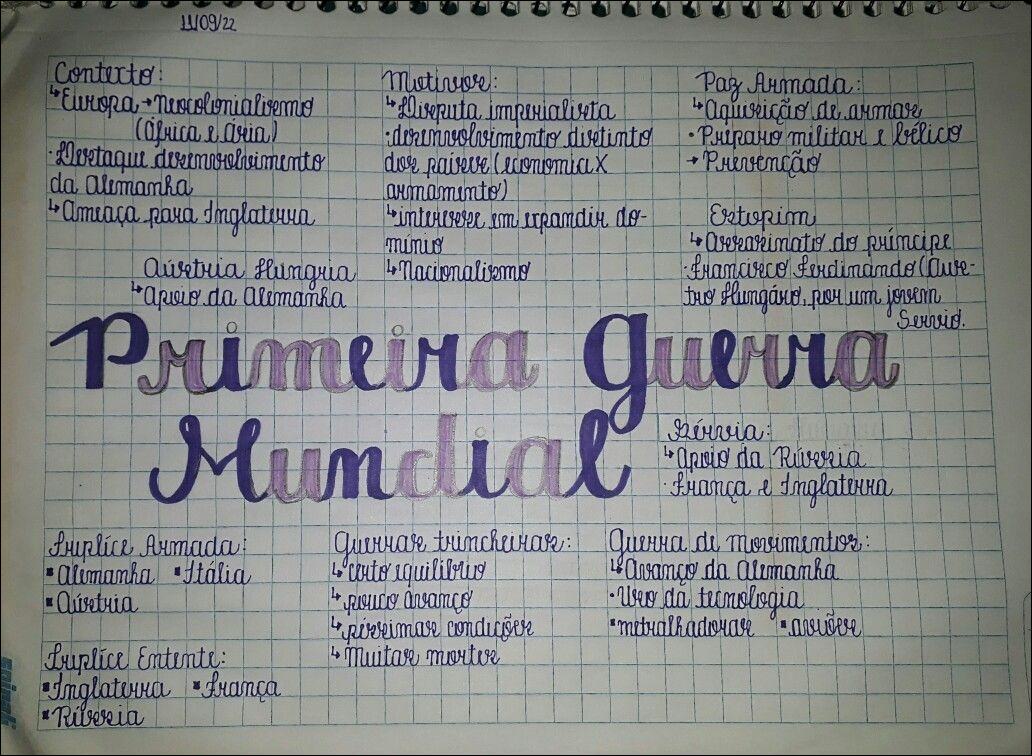 11/09/22
Contexto:
↳Europa → Neocolonialismo
(África e Ásia)
·Destaque desenvolvimento
da Alemanha
↳Ameaça para Inglaterra
Aústria Hungria
↳Apoio da Alemanha
Motivos:
↳Disputa imperialista
·desenvolvimento distinto
dos países (economia X
armamento)
↳interesse em expandir do-
mínio
↳Nacionalismo
Paz Armada:
↳Aquisição de armas
·Préparo militar e bélico
→ Prevenção
Estopim
↳Assassinato do príncipe
·Francisco Ferdinando (Aus-
tro Hungáro, por um jovem
Servio.
Primeira Guerra
Mundial
Sérvia:
↳Apoio da Rússia
·França e Inglaterra
Tríplice Armada:
▪Alemanha ▪Itália
▪Aústria
Tríplice Entente:
▪Inglaterra ▪França
▪Rússia
Guerras trincheiras:
↳certo equilíbrio
↳pouco avanço
↳péssimas condições
↳Muitas mortes
Guerra de movimentos:
↳Avanço da Alemanha
·Uso da tecnologia
▪metralhadoras ▪aviões